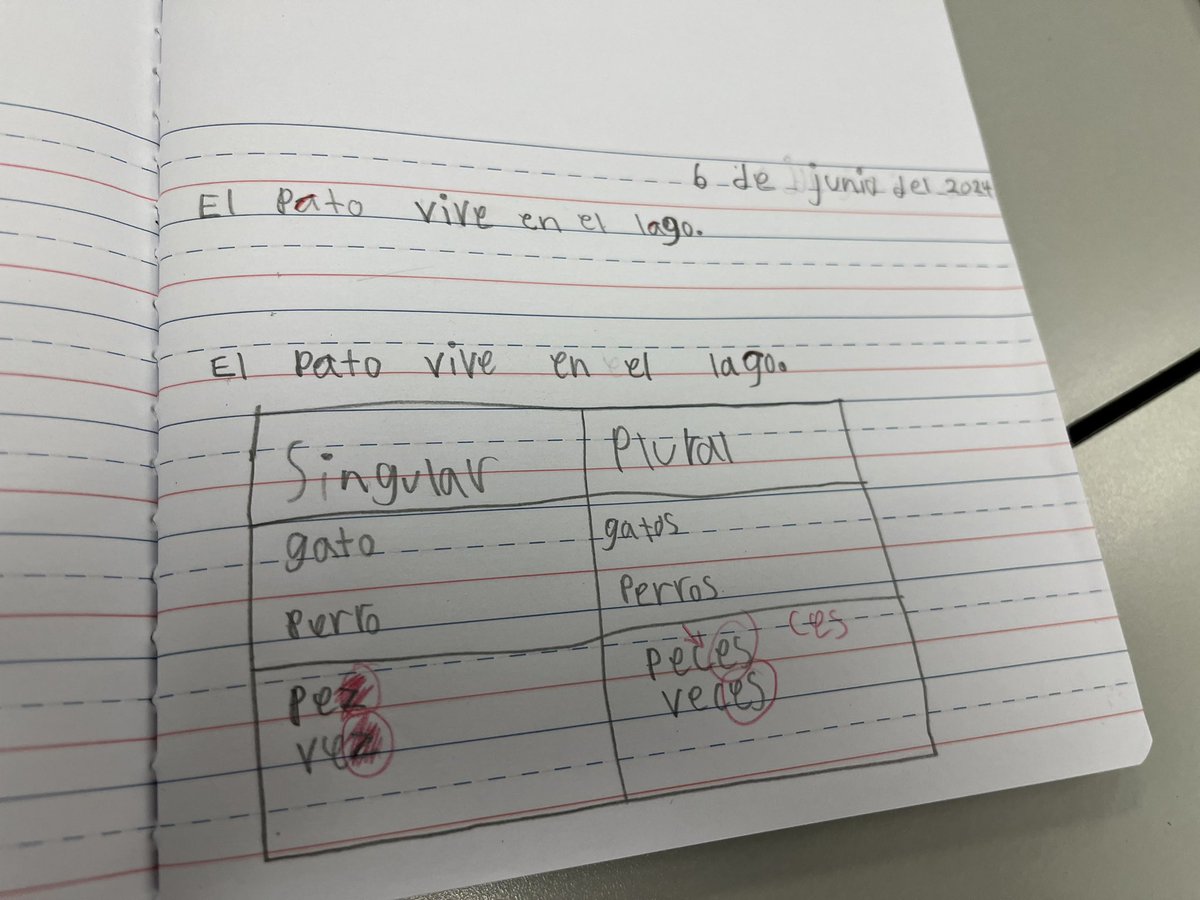 6 de junio del 2024
El pato vive en el lago.
El pato vive en el lago.
Singular Plural
gato gatos
perro perros
pez peces ces
vez veces